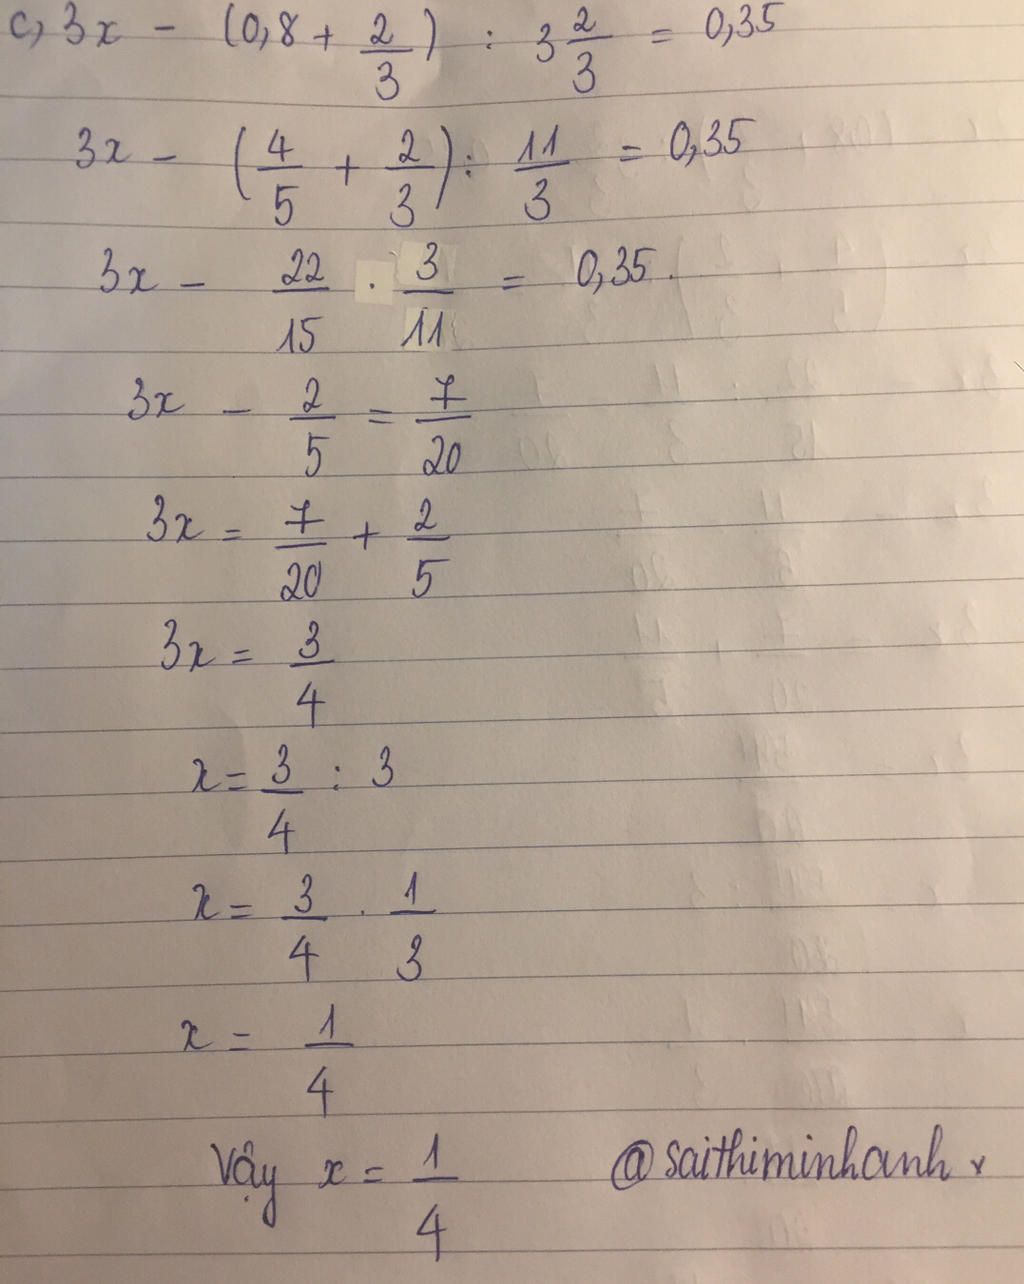 c, 3x - (0,8 + 2/3) : 3 2/3 = 0,35
3x - (4/5 + 2/3) : 11/3 = 0,35
3x - 22/15 . 3/11 = 0,35.
3x - 2/5 = 7/20
3x = 7/20 + 2/5
3x = 3/4
x = 3/4 : 3
x = 3/4 . 1/3
x = 1/4
Vậy x = 1/4 @saithiminhanh